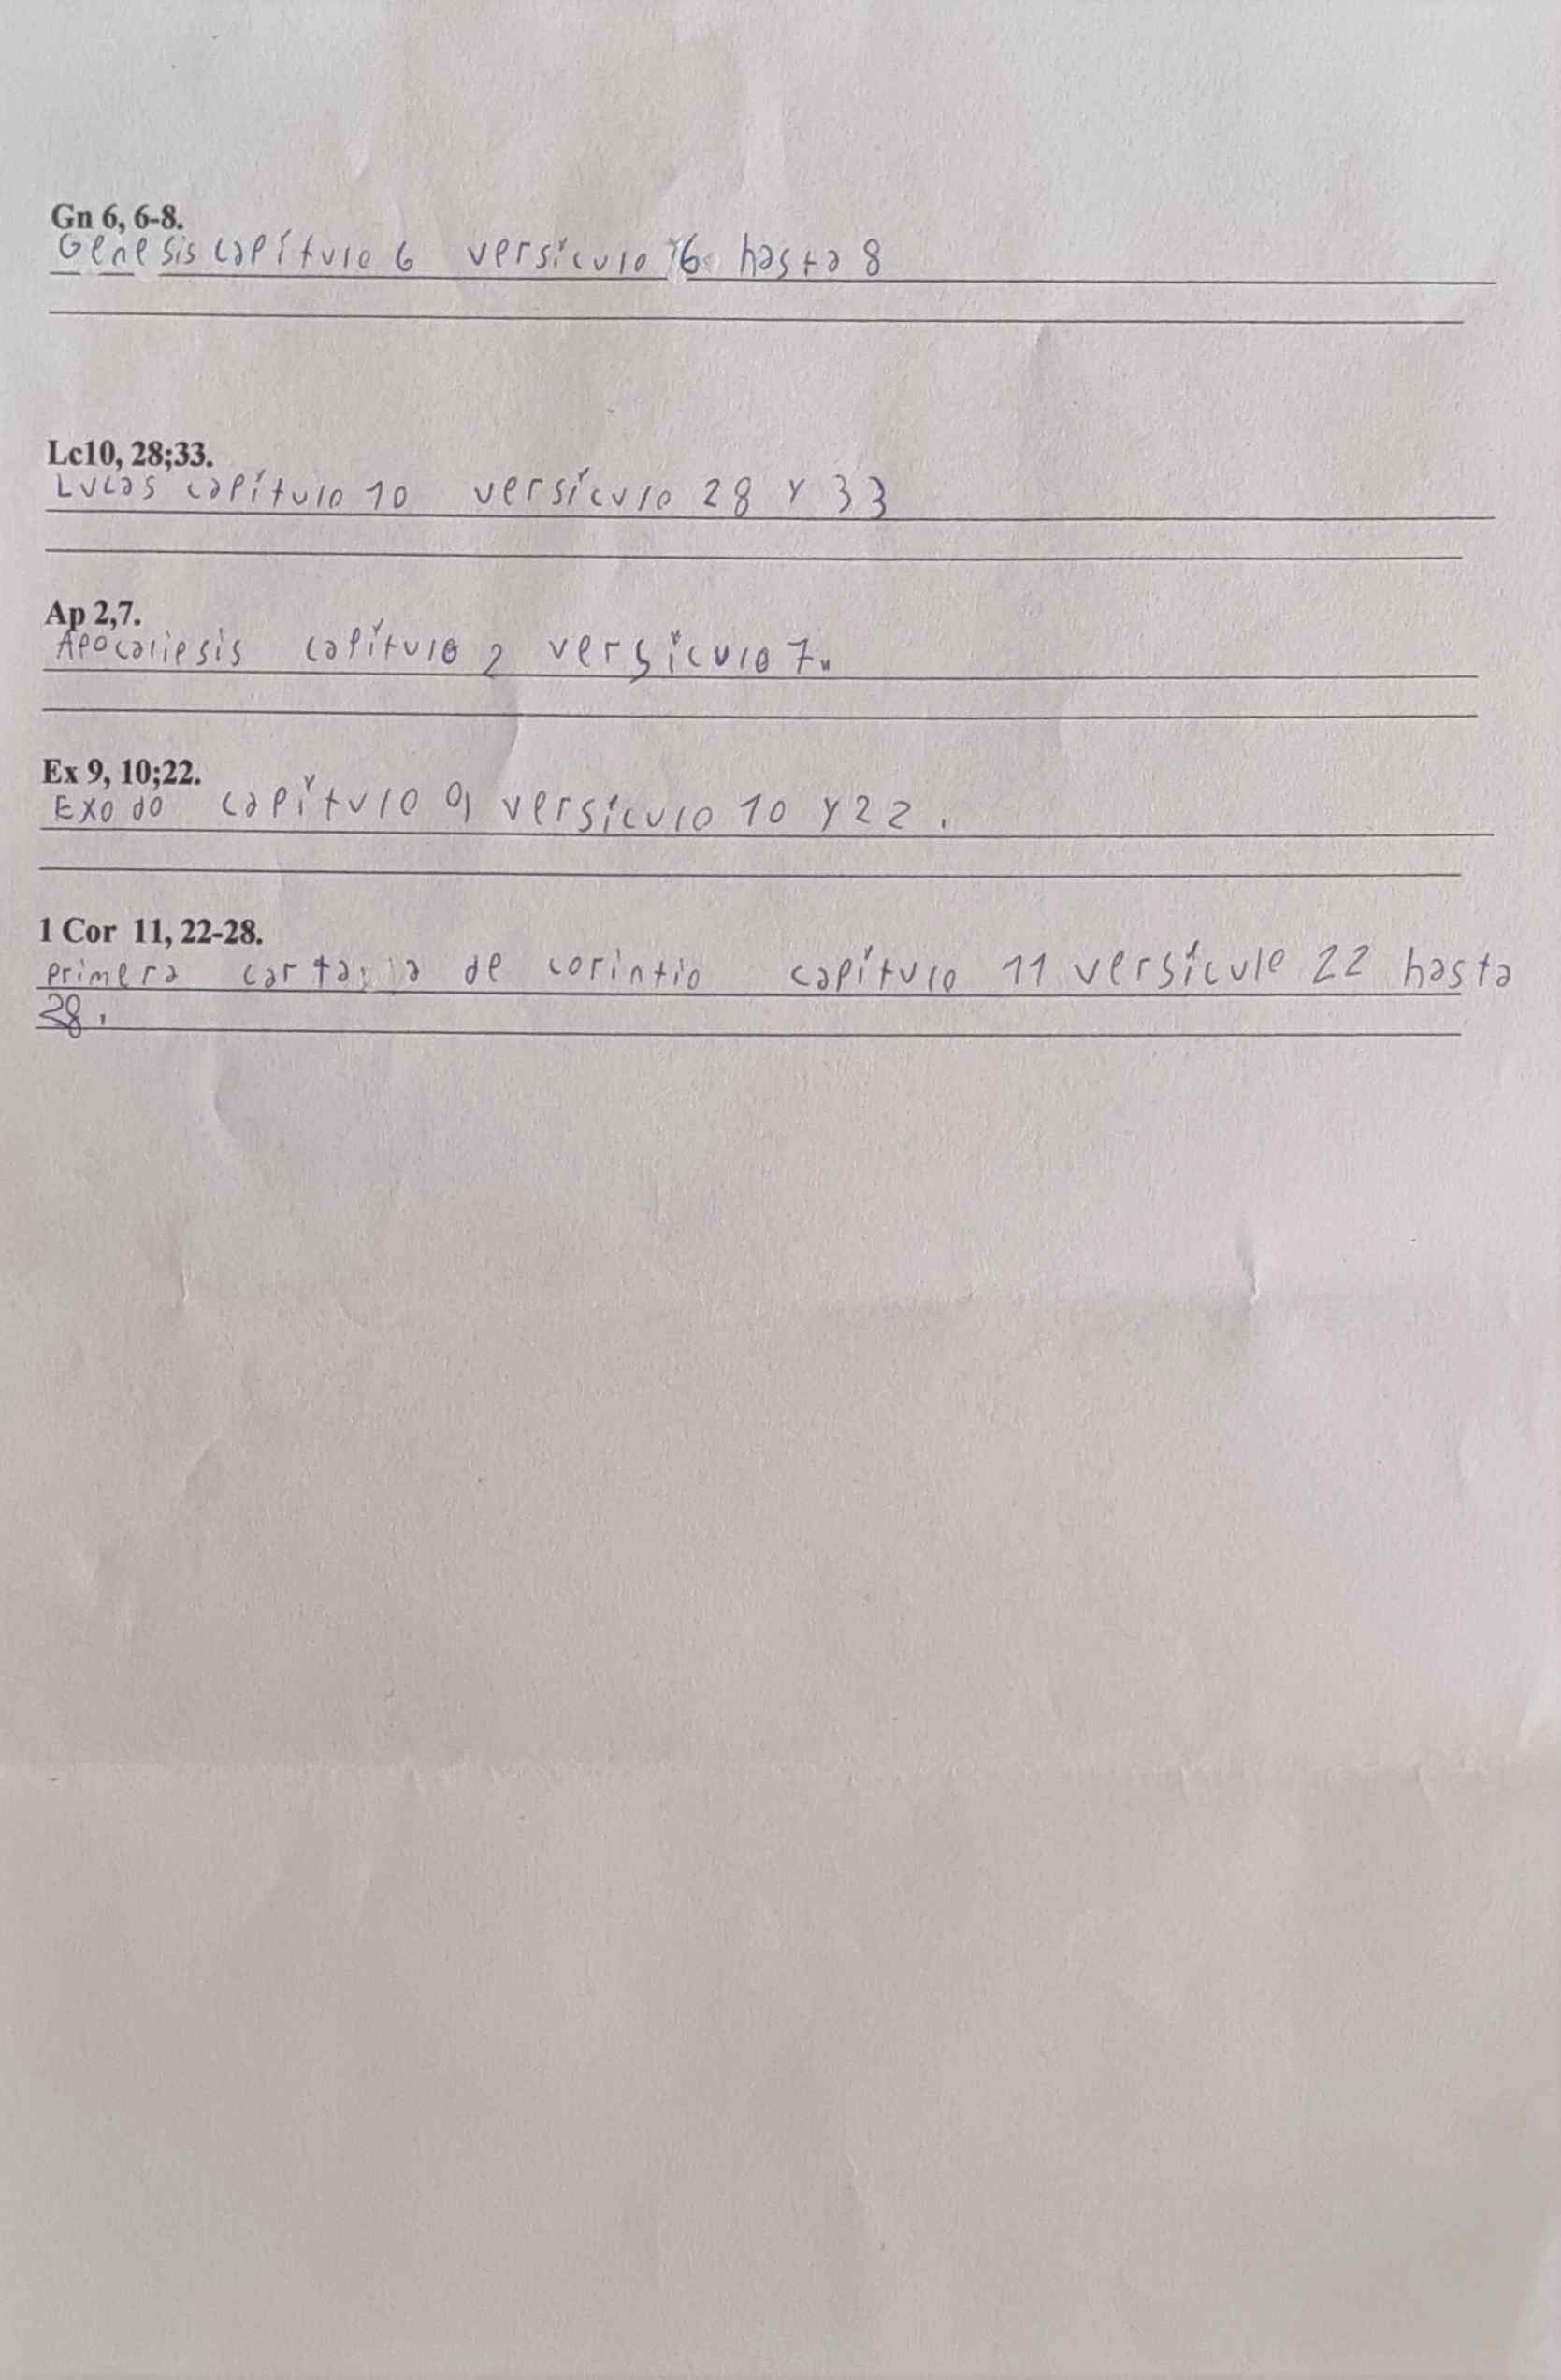 Gn 6, 6-8.
Genesis capítulo 6 versículo 6 hasta 8
Lc10, 28;33.
Lucas capítulo 10 versículo 28 y 33
Ap 2,7.
Apocaliesis capítulo 2 versículo 7.
Ex 9, 10;22.
Exodo capítulo 9 versículo 10 y 22.
1 Cor 11, 22-28.
primera carta de corintio capítulo 11 versícule 22 hasta
28.